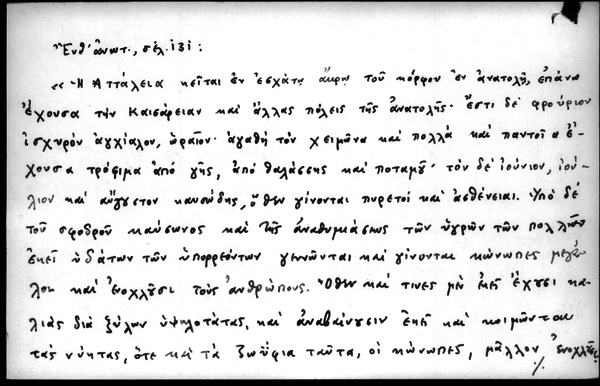 Ἔνθ' ἀνωτ., σελ. 131:
«Ἡ Ἀττάλεια κεῖται ἐν ἐσχάτῳ ἄκρῳ τοῦ κόρφου ἐν ἀνατολῇ, ἐπάνω
ἔχουσα τὴν Καισάρειαν καὶ ἄλλας πόλεις τῆς ἀνατολῆς· ἔστι δὲ φρούριον
ἰσχυρὸν ἀγχίαλον, ὡραῖον· ἀγαθὴ τὸν χειμῶνα καὶ πολλὰ καὶ παντοῖα ἔ-
χουσα τρόφιμα ἀπὸ γῆς, ἀπὸ θαλάσσης καὶ ποταμοῦ· τὸν δὲ ἰούνιον, ἰού-
λιον καὶ αὔγουστον καυσώδης, ὅθεν γίνονται πυρετοὶ καὶ ἀσθένειαι. Ὑπὸ δὲ
τοῦ σφοδροῦ καύσωνος καὶ τῆς ἀναθυμιάσεως τῶν ὑγρῶν τῶν πολλῶν
ἐκεῖ ὑδάτων τῶν ὑπορρεόντων γεννῶνται καὶ γίνονται κώνωπες μεγά-
λοι καὶ ἐνοχλοῦσι τοὺς ἀνθρώπους. Ὅθεν καί τινες μὲν ἐκεῖ ἔχουσι κα-
λιὰς διὰ ξύλων ὑψηλοτάτας, καὶ ἀναβαίνουσιν ἐκεῖ καὶ κοιμῶνται
τὰς νύκτας, ὅτε καὶ τὰ ζωΰφια ταῦτα, οἱ κώνωπες, μᾶλλον ἐνοχλοῦσι
./.